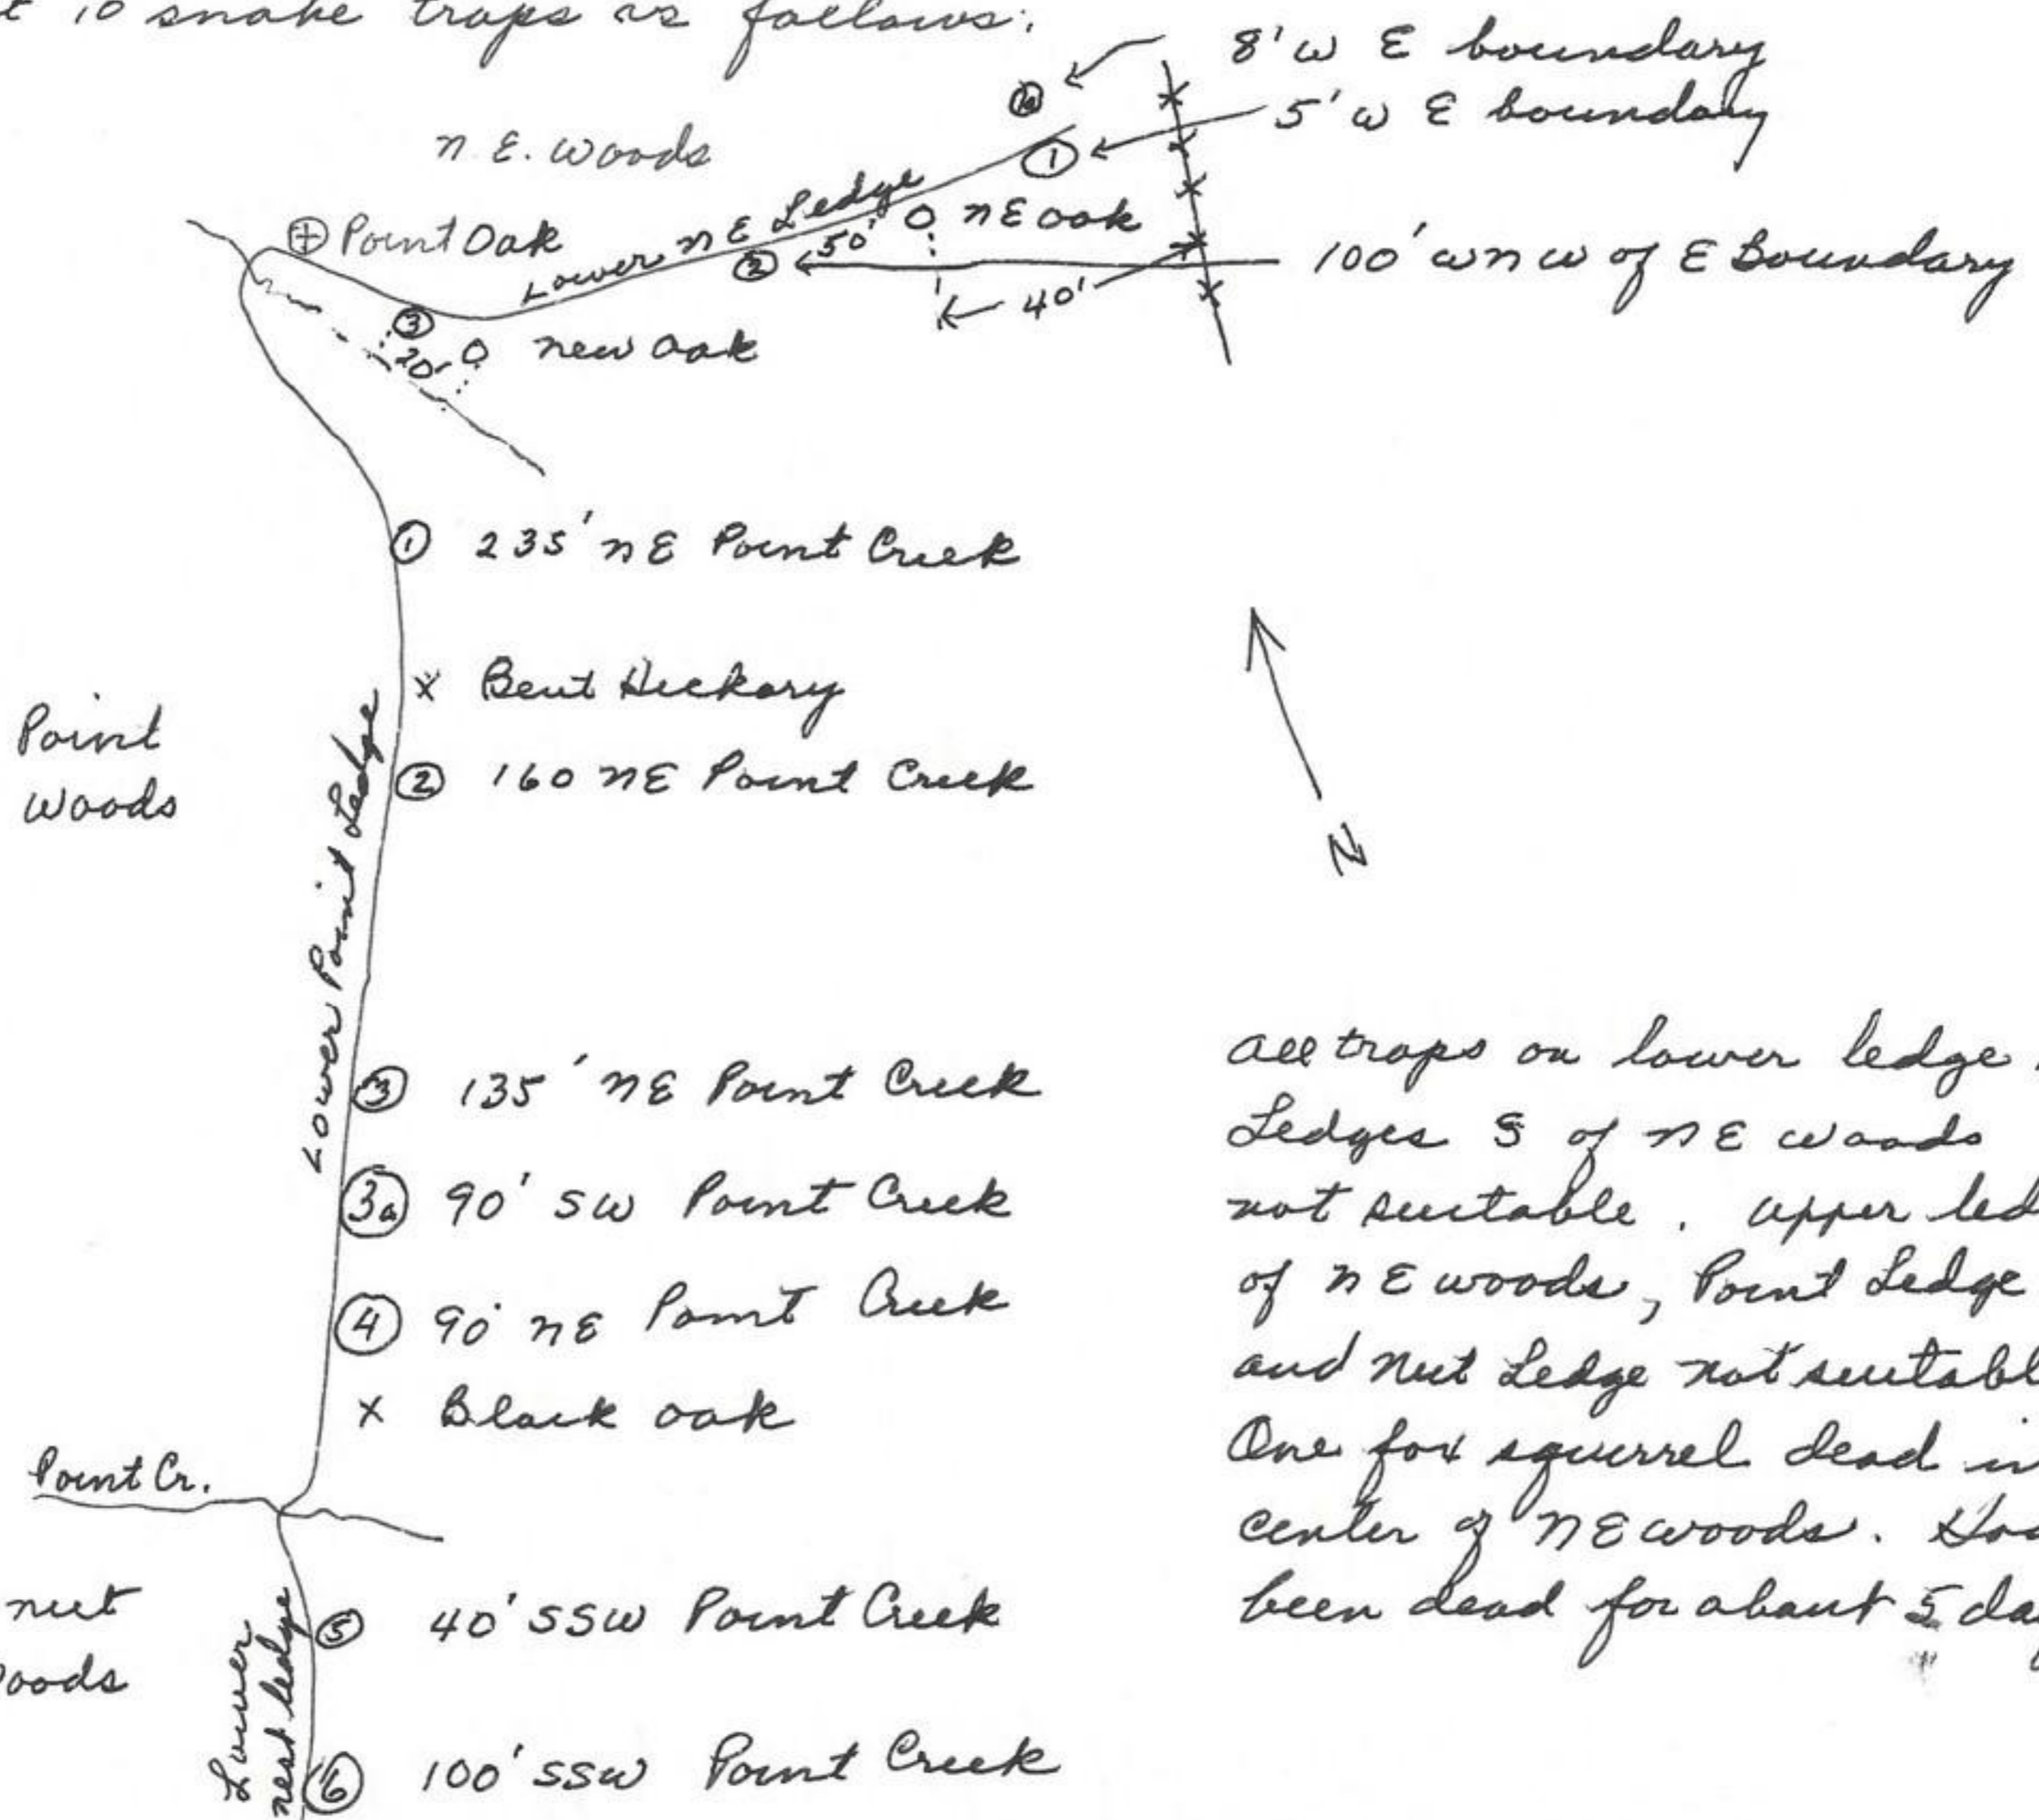 10 snake traps as follows:
8' W E boundary
5' W E boundary
n.E. woods
1
Lower n E Ledge
O n E oak
Point Oak
50'
2
100' wnw of E Boundary
40'
3
20'
O new oak
1 235' n E Point Creek
x Bent Hickory
Point
woods
2 160 NE Point Creek
Lower Point Ledge
N
3 135' NE Point Creek
3a 90' SW Point Creek
4 90' nE Point Creek
x Black oak
Point Cr.
nut
oods
Lower
nest ledge
5 40' SSW Point Creek
6 100' SSW Point Creek
All traps on lower ledge.
Ledges S of n E woods
not suitable. Upper led
of n E woods, Point Ledge
and Nut Ledge not suitabl
One fox squirrel dead in
center of n E woods. Had
been dead for about 5 da